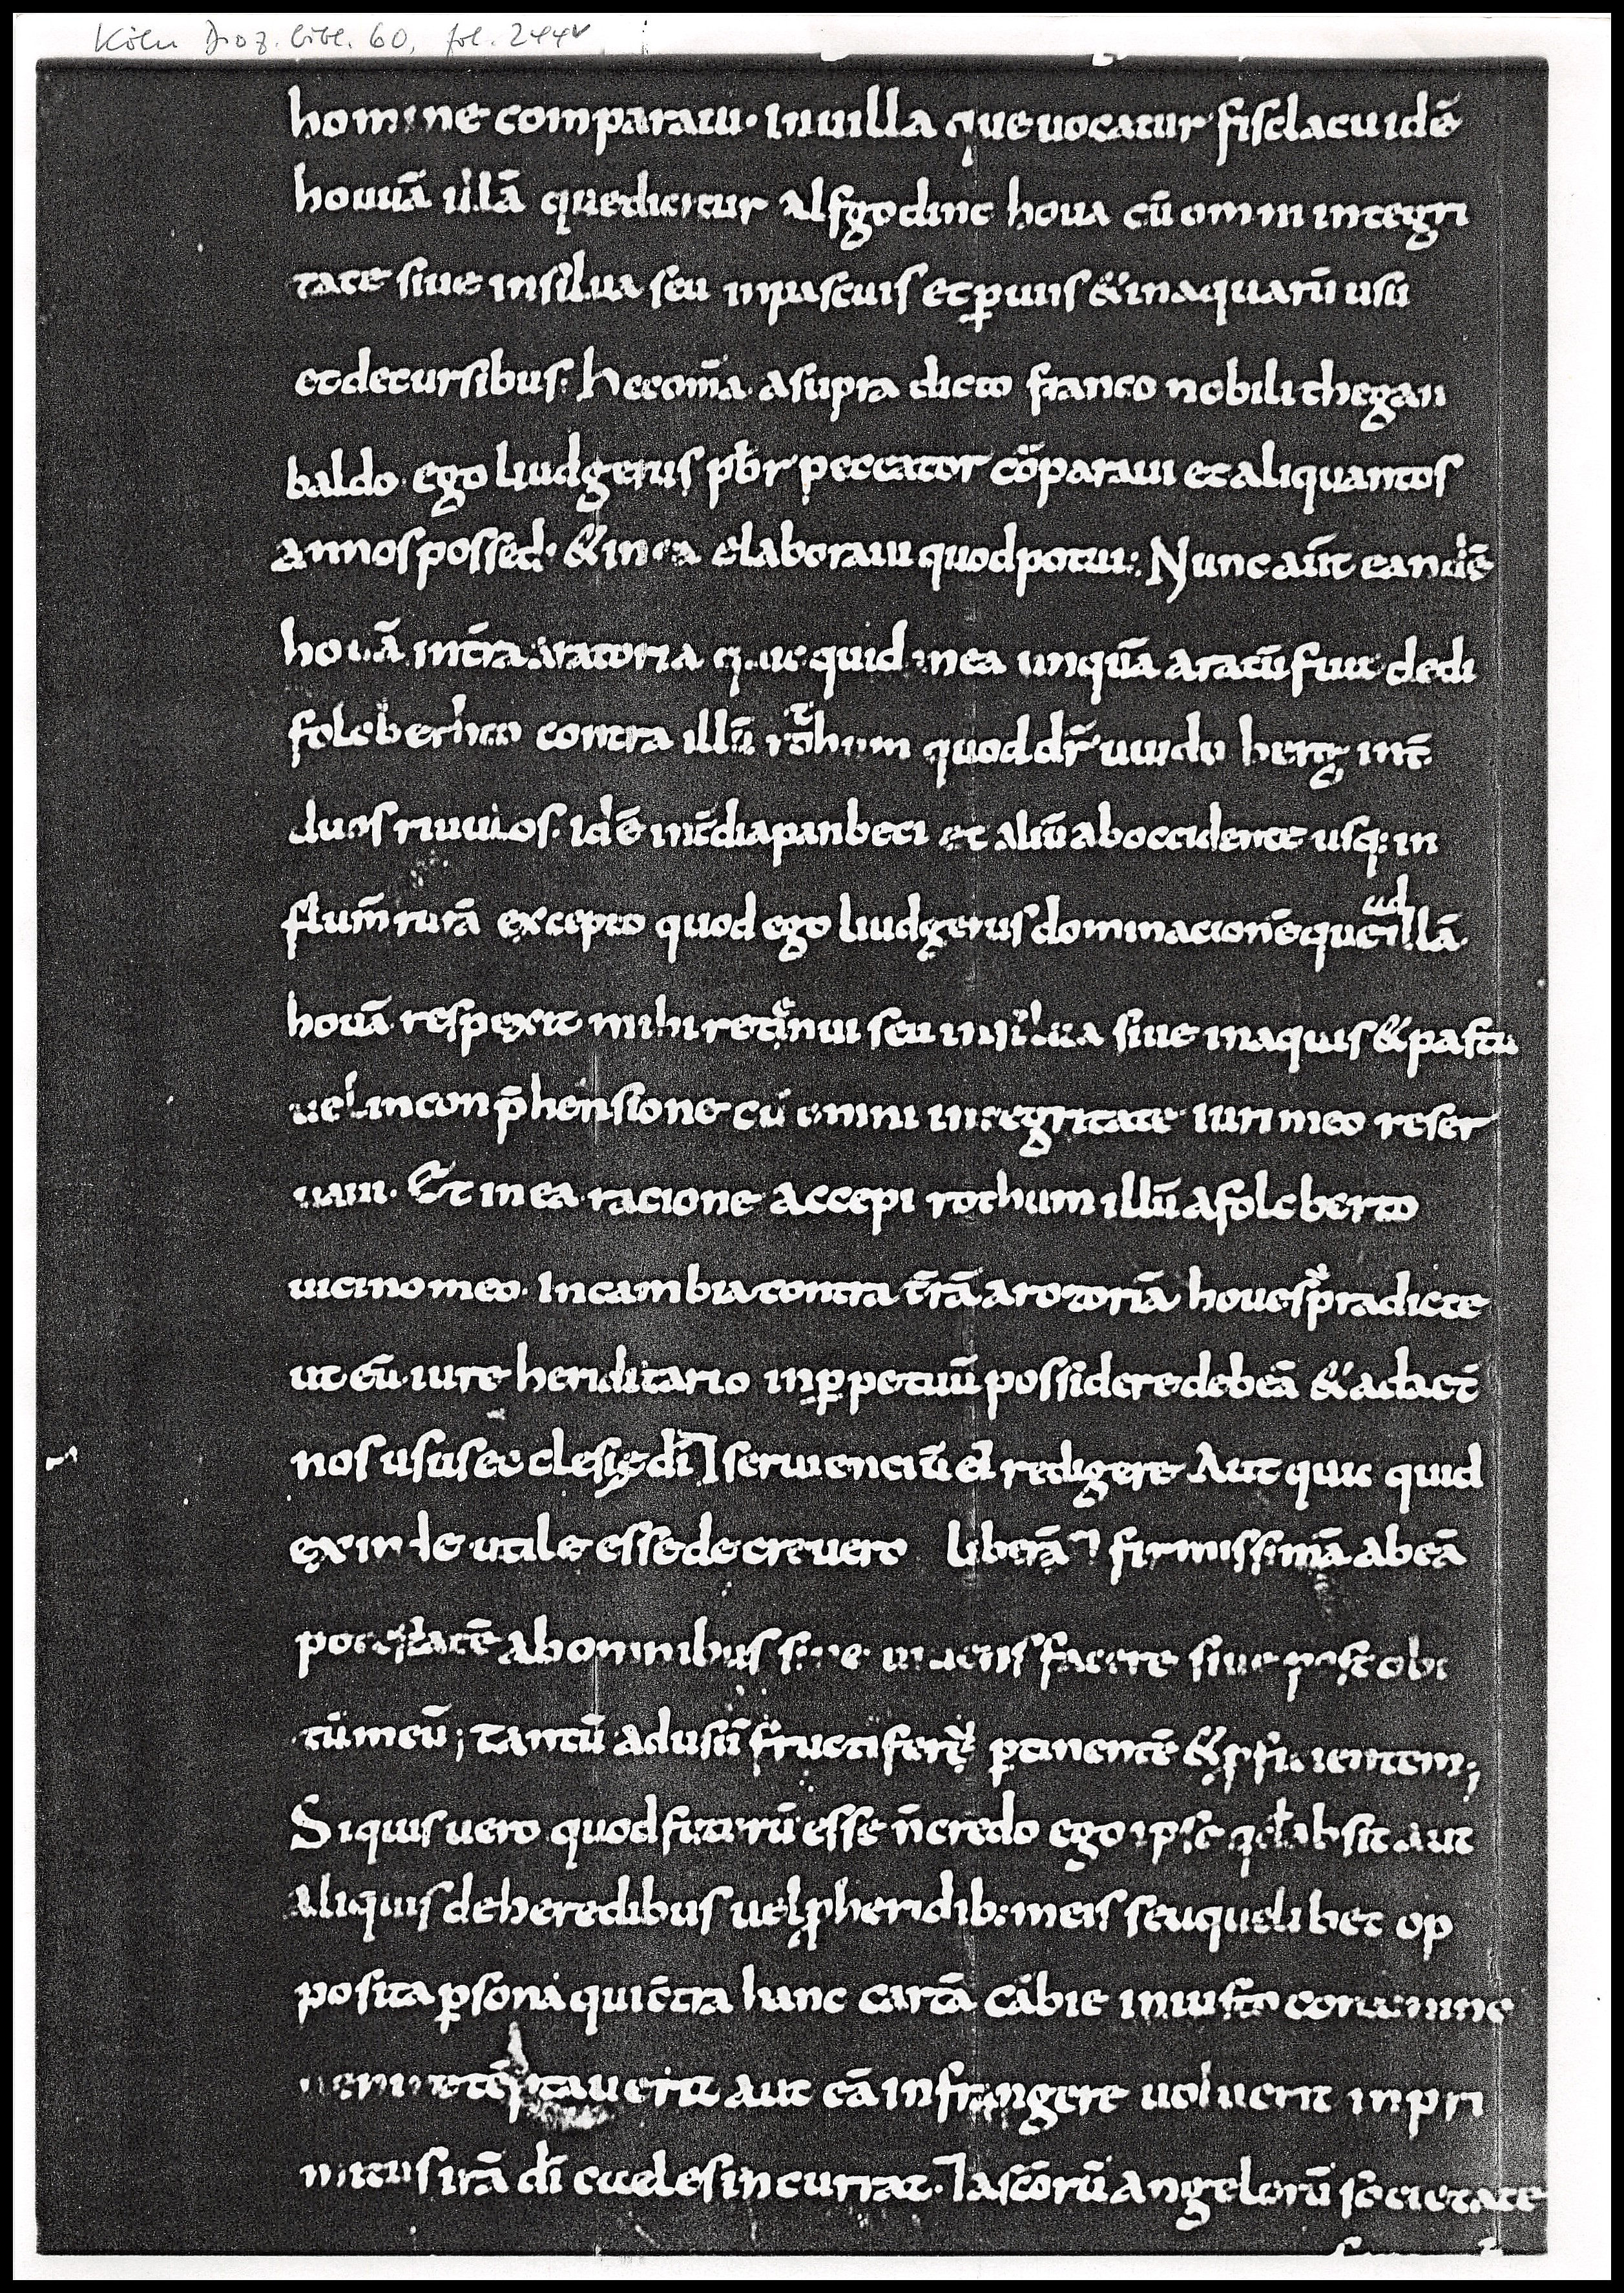 Köln Diöz. bibl. 60, fol. 244v
homine comparaui· In uilla que uocatur fisclacu idē
houuā illā que dicitur alfgodinc houa cū omni integri
tate siue in silua seu in pascuis et ꝑuiis & in aquarū usu
et decursibus: hec om̄a a supra dicto franco nobili thegan
baldo· ego liudgerus pb̄r peccator cōparaui et aliquantos
annos possed· & in ea elaboraui quod potui: Nunc aūt eandē
houā int̄ra aratoria quic quid in ea unquā aratū fuit dedi
folcberhto contra illū rothum quod dr̄ uuidu berg int̄
duos riuulos· idē int̄ diapanbeci et aliū ab occidente usq: in
flum̄ rurā excepto quod ego liudgerus dominacionē que ad illā
houā respexit mihi retinui seu in silua siue in aquis & pastu
uel in conp̄hensione cū omni integritate iuri meo reser
uaui· Et in ea racione accepi rothum illū a folcberto
uicino meo· In cambia contra t̄rā arotoriā houe sup̄radicte
ut eū iure heriditario in ꝑpetuū possidere debeā & ad aet̄
nos usus ecclesię dī ⁊ seruienciū ei redigere Aut quic quid
exinde utile esse decreuero liberā ⁊ firmissimā ab eā
potestatē ab omnibus siue uiuens facere siue post obi
tū meū; tantū ad usū fructiferū ꝑtinentē & ꝓficientem;
Si quis uero quod futurū esse n̄ credo ego ipse qd absit aut
aliquis de heredibus uel ꝓheridib: meis seu quelibet op
posita ꝑsona qui c̄tra hanc cartā cābie iniusto conamine
uenire tēptauerit aut eā infrangere uoluerit inpri
mitus irā dī celes incurrat· ⁊ a sc̄orū angelorū societate